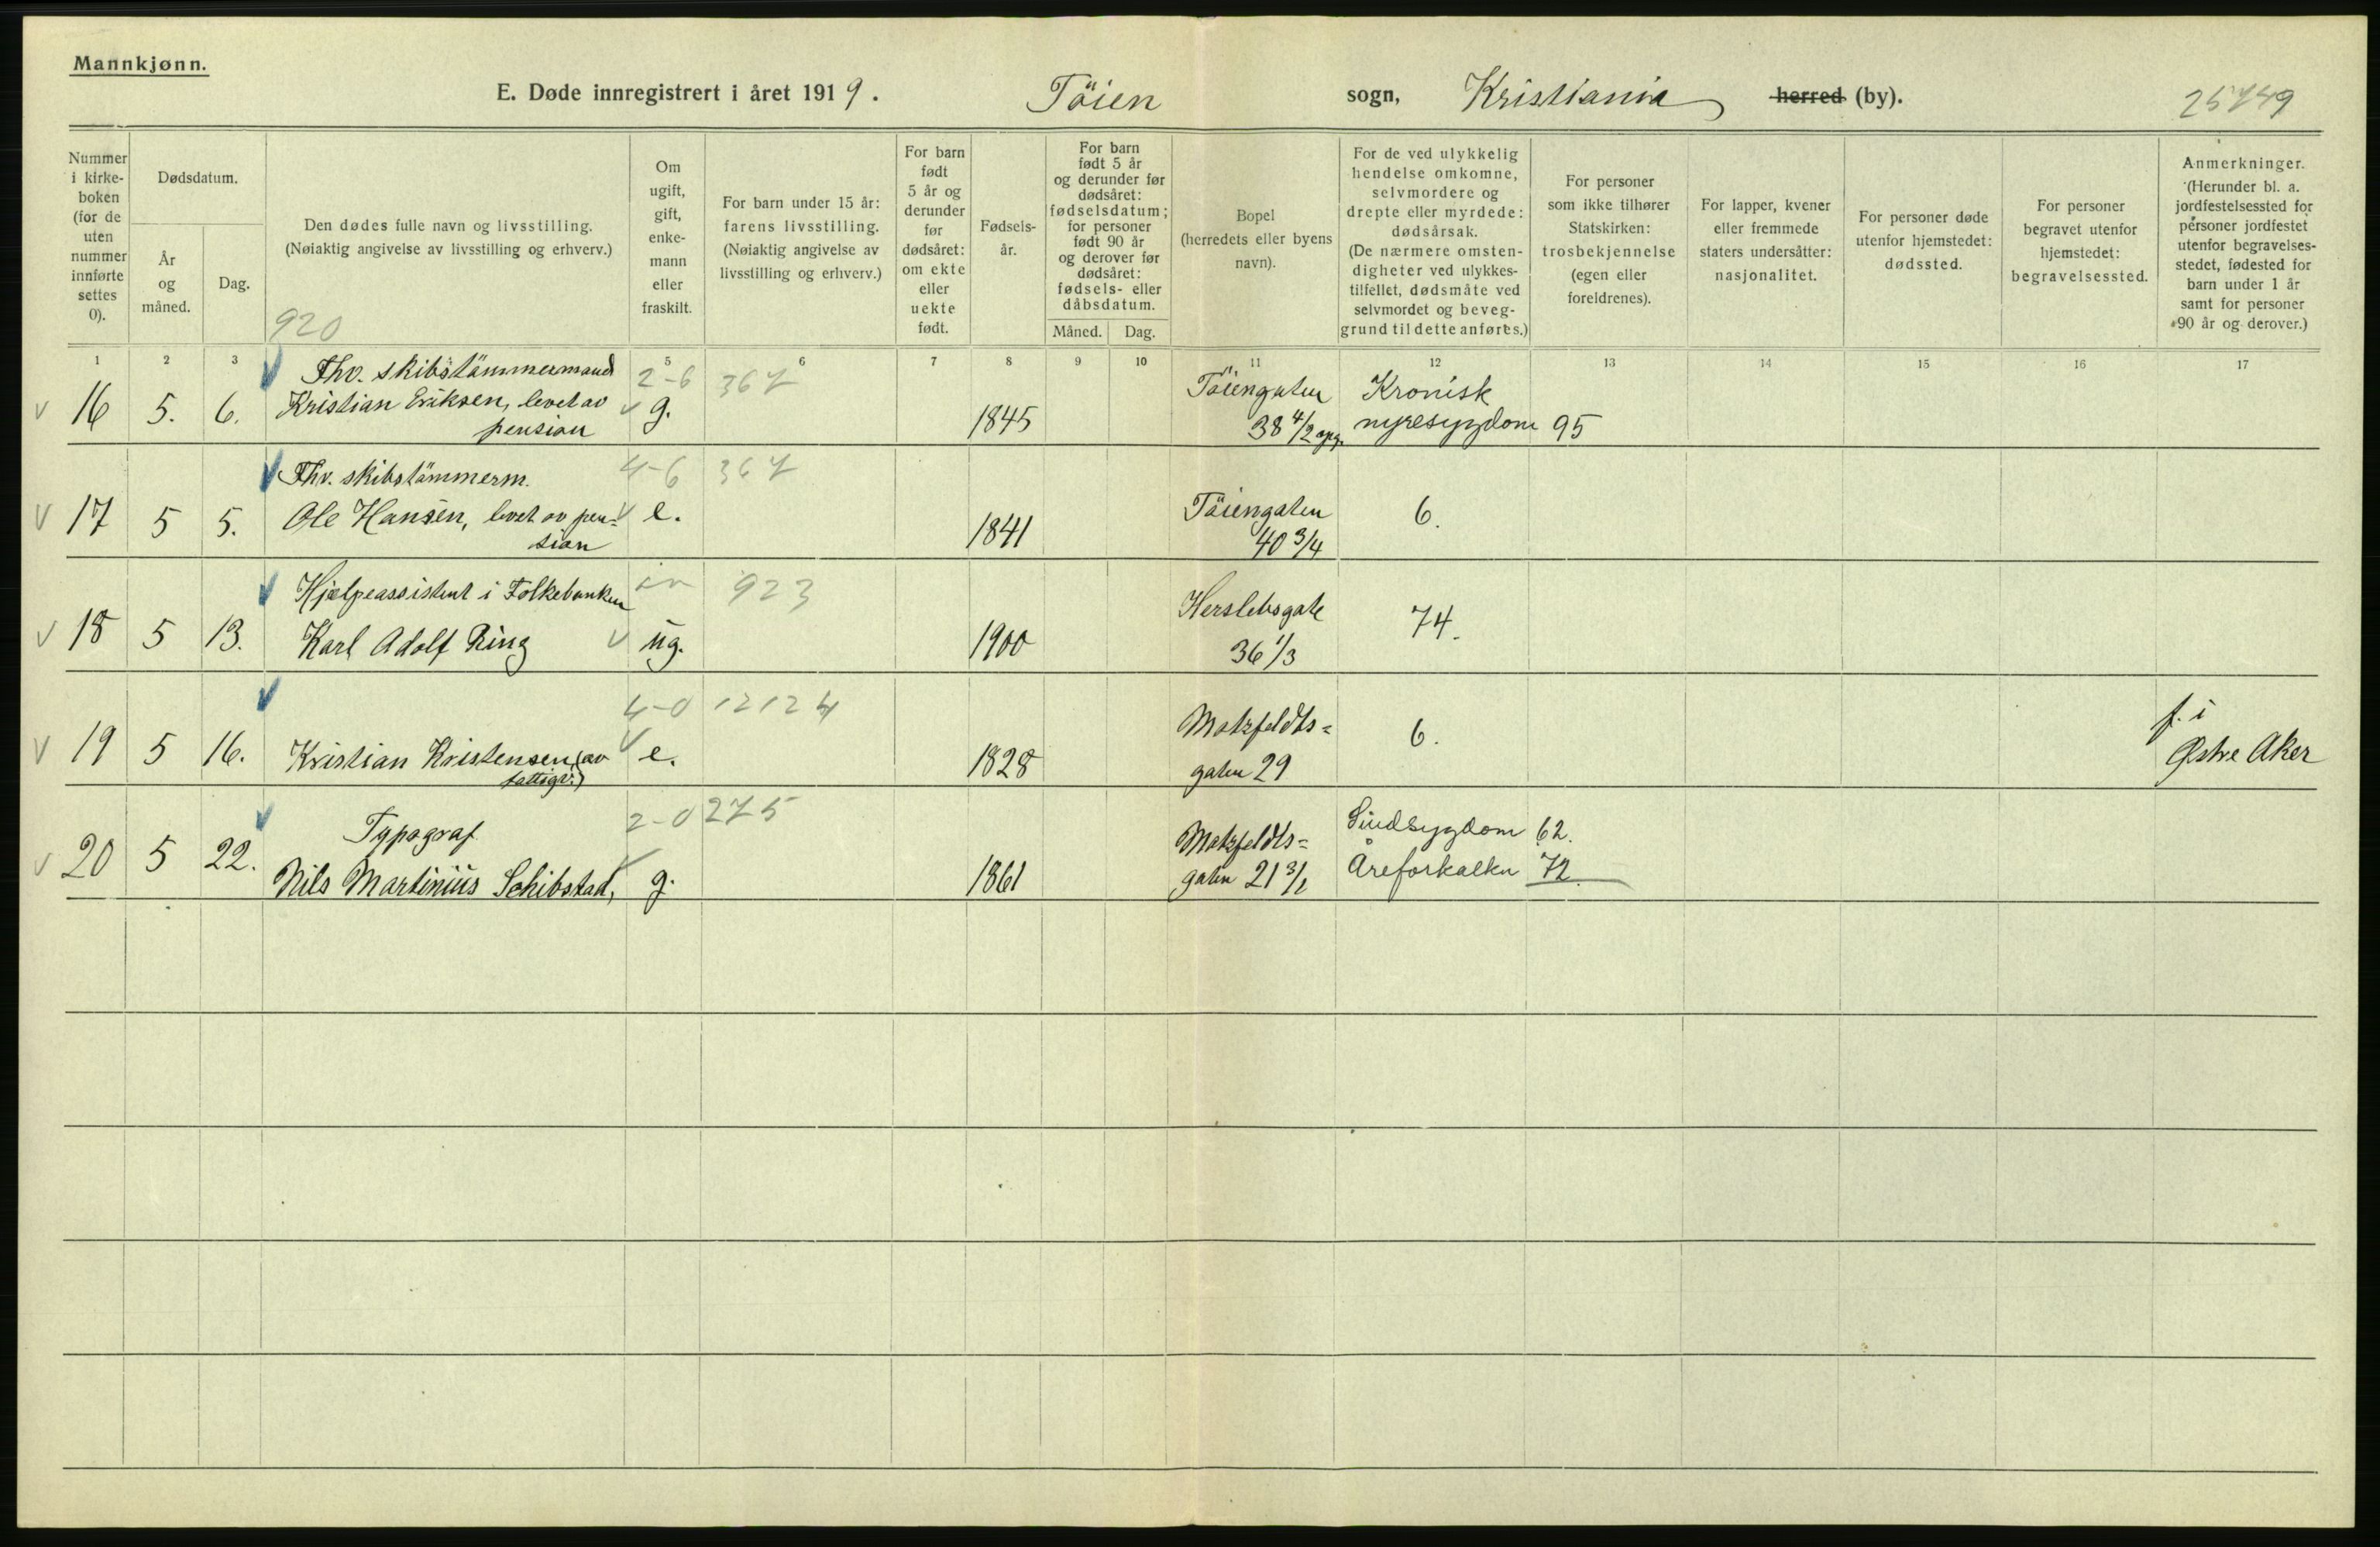 Mannkjønn.
E. Døde innregistrert i året 1919. Töien sogn, Kristiania herred (by). 25749
Nummer i kirke-boken (for de uten nummer innførte settes 0).
Dødsdatum.
År og måned.
Dag.
Den dødes fulle navn og livsstilling.
(Nøiaktig angivelse av livsstilling og erhverv.)
920
Om ugift, gift, enke-mann eller fraskilt.
For barn under 15 år:
farens livsstilling.
(Nøiaktig angivelse av
livsstilling og erhverv.)
For barn født 5 år og derunder før dødsåret: om ekte eller uekte født.
Fødsels-år.
For barn
født 5 år
og derunder før
dødsåret:
fødselsdatum;
for personer
født 90 år
og derover før
dødsåret:
fødsels- eller
dåbsdatum.
Måned. Dag.
Bopel
(herredets eller byens
navn).
For de ved ulykkelig
hendelse omkomne,
selvmordere og
drepte eller myrdede:
dødsårsak.
(De nærmere omsten-
digheter ved ulykkes-
tilfellet, dødsmåte ved
selvmordet og beveg-
grund til dette anføres.)
For personer
som ikke tilhører
Statskirken:
trosbekjennelse
(egen eller
foreldrenes).
For lapper, kvener
eller fremmede
staters undersåtter:
nasjonalitet.
For personer døde
utenfor hjemstedet:
dødssted.
For personer
begravet utenfor
hjemstedet:
begravelsessted.
Anmerkninger.
(Herunder bl. a.
jordfestelsessted for
personer jordfestet
utenfor begravelses-
stedet, fødested for
barn under 1 år
samt for personer
90 år og derover.)
1 2 3 5 6 7 8 9 10 11 12 13 14 15 16 17
Fhv. skibstömmermand 2-6 367 Töiengaten Kronisk
v 16 5. 6. Kristian Eriksen, levet av v g. 1845 38 4/2 opg. nyresygdom 95
pension
Fhv. skibstömmerm. 4-6 367
v 17 5 5. Ole Hansen, levet av pen- v e. 1841 Töiengaten 6.
sion 40 3/4
Hjælpeassistent i Folkebanken 923 Herslebsgate
v 18 5 13. Karl Adolf Ring v ug. 1900 36 1/3 74.
4-0 12124 Motzfeldts= f. i
v 19 5 16. Kristian Kristensen (av v e. 1828 gaten 29 6. Østre Aker
fattigv.)
Typograf 2-0 275 Motzfeldts= Sindsygdom 62.
v 20 5 22. Nils Martinius Schibstad, g. 1861 gaten 21 3/1 Åreforkalkn 72.